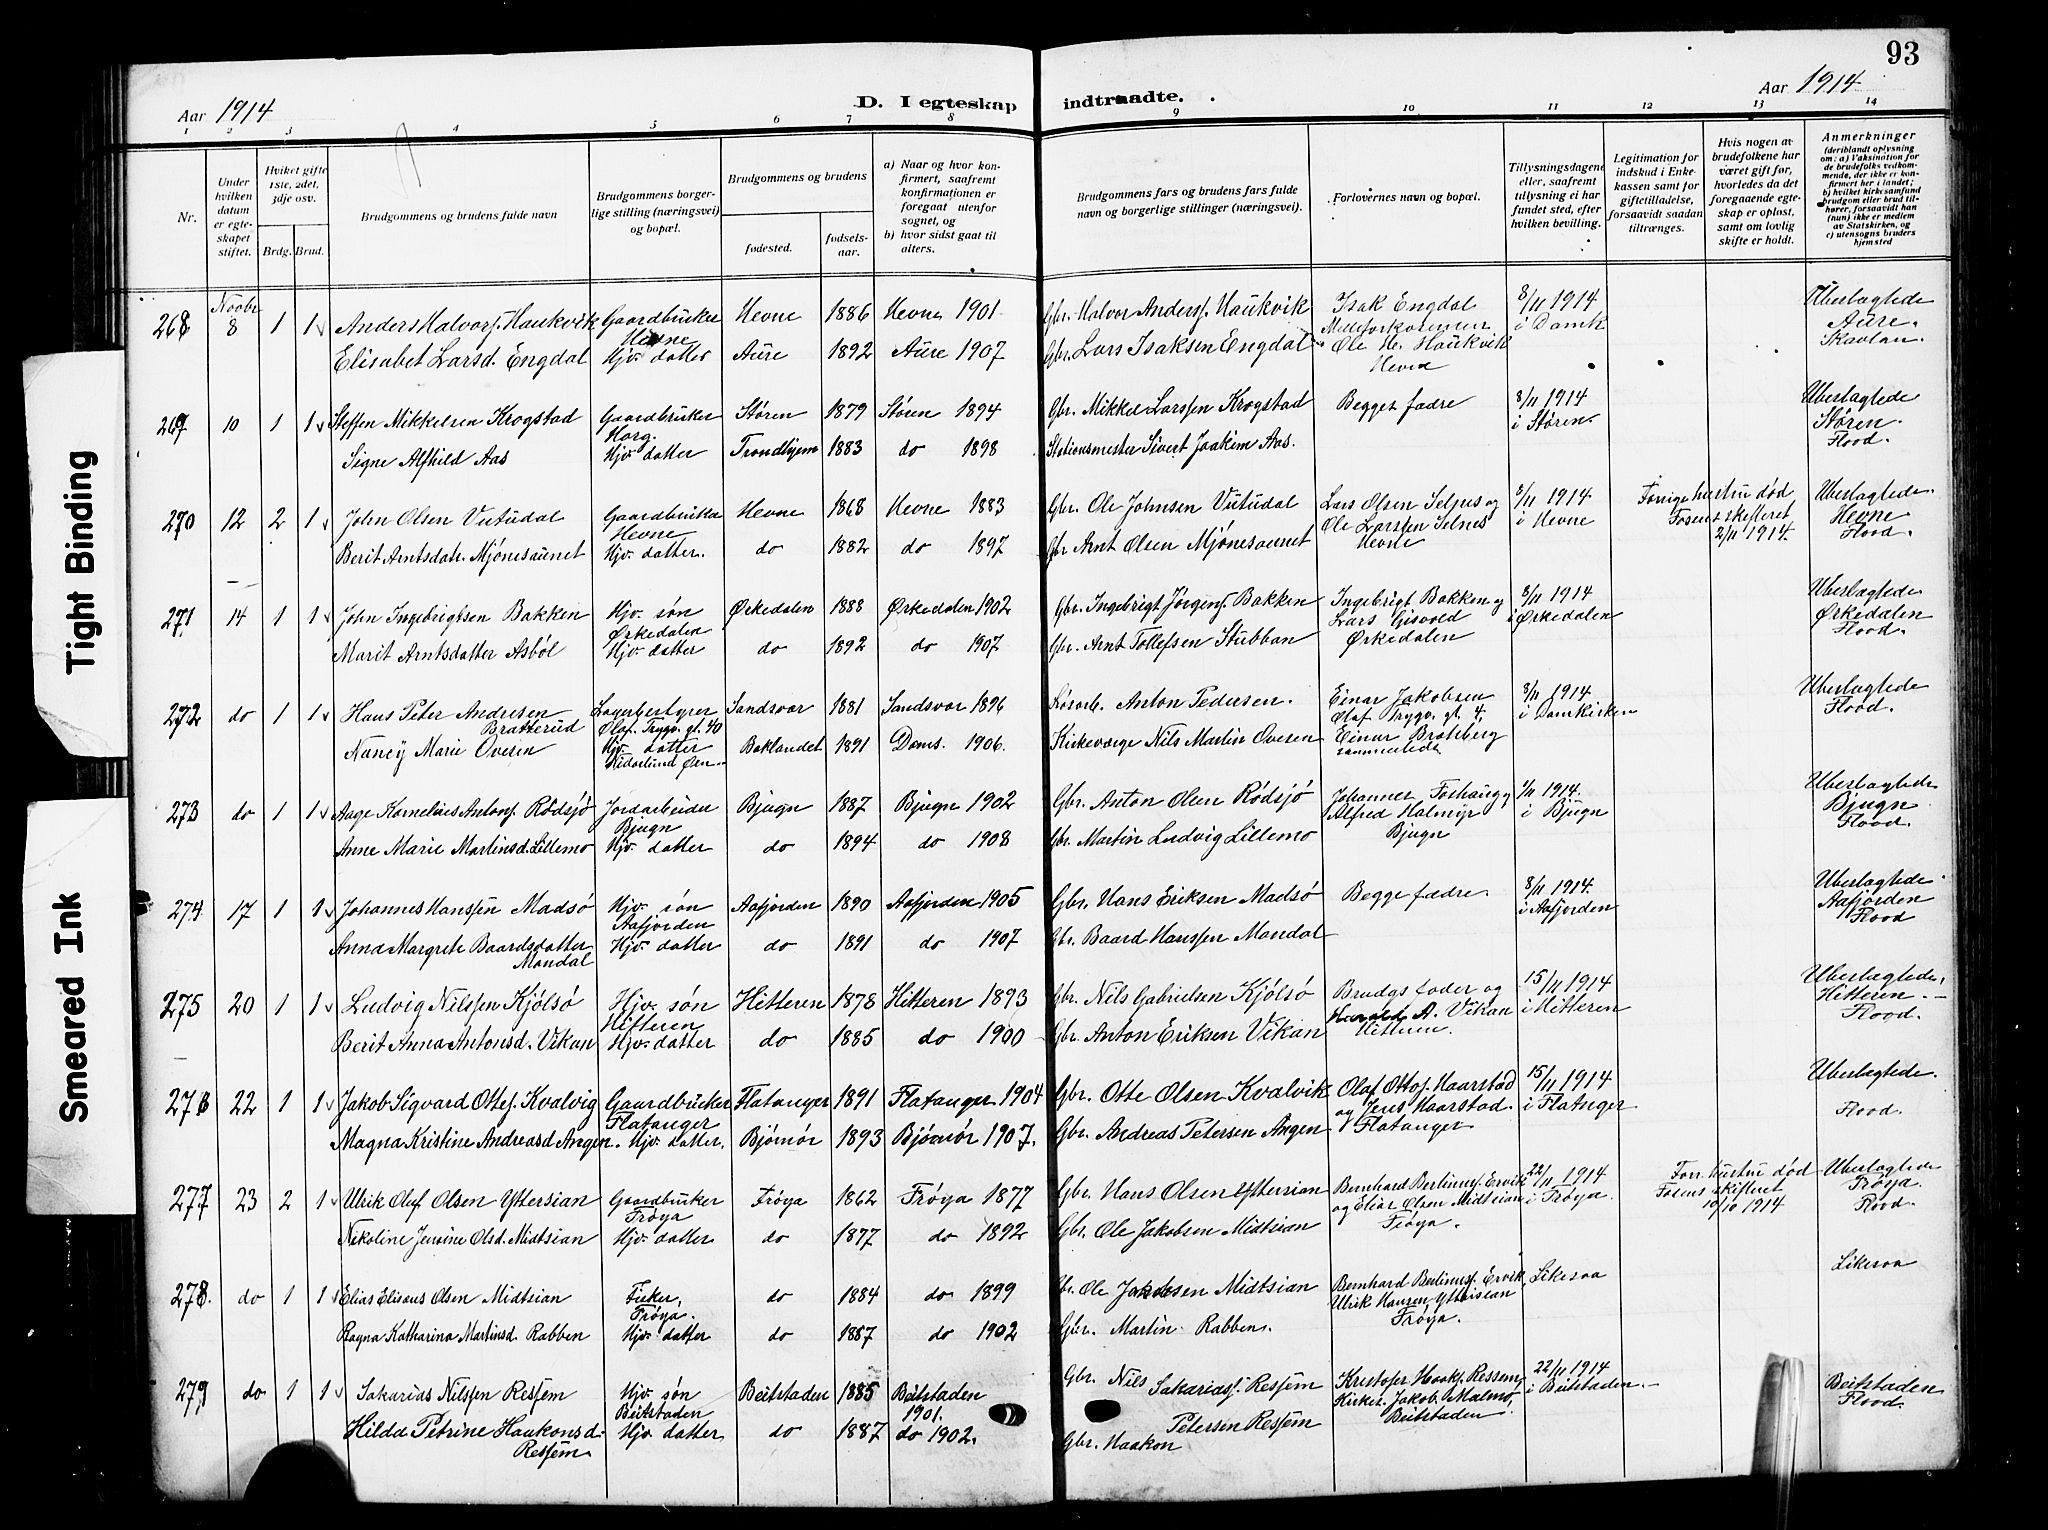 93
Aar 1914
D. I egteskap indtraadte.
Aar 1914
1 2 3 4 5 6 7 8 9 10 11 12 13 14
Nr.
Under hvilken datum er egteskapet stiftet.
Hvilket gifte 1ste, 2det, 3dje osv.
Brdg. Brud.
Brudgommens og brudens fulde navn
Brudgommens borgerlige stilling (næringsvei) og bopæl.
Brudgommens og brudens
fødested.
fødselsaar.
a) Naar og hvor konfirmert, saafremt konfirmationen er foregaat utenfor sognet, og
b) hvor sidst gaat til alters.
Brudgommens fars og brudens fars fulde navn og borgerlige stillinger (næringsvei).
Forlovernes navn og bopæl.
Tillysningsdagene eller, saafremt tillysning ei har fundet sted, efter hvilken bevilling.
Legitimation for indskud i Enkekassen samt for giftetilladelse, forsaavidt saadan tiltrænges.
Hvis nogen av brudefolkene har været gift før, hvorledes da det foregaaende egteskap er opløst, samt om lovlig skifte er holdt.
Anmerkninger (deriblandt oplysning om: a) Vaksination for de brudefolks vedkommende, der ikke er konfirmert her i landet; b) hvilket kirkesamfund brudgom eller brud tilhører, forsaavidt han (hun) ikke er medlem av Statskirken, og c) utensogns bruders hjemsted
268 Novbr 8 1 1 Anders Halvors. Haukvik Gaardbruker Hevne Hevne 1886 Hevne 1901 Gbr. Halvor Anders. Haukvik Isak Engdal 8/11 1914 i Domk Uberlagtede Aure.
Elisabet Larsd. Engdal Hjv. datter Aure 1892 Aure 1907 Gbr. Lars Isaksen Engdal Ole H. Haukvik Skavlan.
269 10 1 1 Steffen Mikkelsen Krogstad Gaardbruker Horg. Støren 1879 Støren 1894 Gbr. Mikkel Larssen Krogstad Begges fædre 8/11 1914 i Støren. Uberlagtede Støren.
Signe Alfhild Aas Hjv. datter Trondhjem 1883 do 1898 Stationsmester Sivert Joakim Aas. Flood.
270 12 2 1 John Olsen Vutudal Gaardbruker Hevne Hevne 1868 Hevne 1883 Gbr. Ole Johnsen Vutudal Lars Olsen Selnes og 8/11 1914 i Hevne Forrige hustru død Uberlagtede Hevne
Berit Arntsdatr. Mjønesaunet Hjv. datter. do 1882 do 1897 Gbr Arnt Olsen Mjønesaunet Ole Larssen Selnes Hevne Fosens skifteret 2/11 1914. Flood.
271 14 1 1 John Ingebrigtsen Bakken Hjv. søn Ørkedalen Ørkedalen 1888 Ørkedalen 1902 Gbr. Ingebrigt Jørgens. Bakken Ingebrigt Bakken og 8/11 1914 i Ørkedalen Uberlagtede Ørkedalen
Marit Arntsdatter Asbøl Hjv. datter do 1892 do 1907 Gbr. Arnt Tollefsen Stubban Lars Gisvold Ørkedalen Flood.
272 do 1 1 Hans Peter Andresen Bratterud Lagerbestyrer Olaf Trygv. gt. 40 Sandsvær 1881 Sandsvær 1896 Anton Pedersen. Einar Jakobsen Olaf Trygv. gt. 4, 8/11 1914 i Domkirken Uberlagtede
Nancy Marie Ovesen Hjv. datter Baklandet 1891 Doms. 1906. Kirkeværge Nils Martin Ovesen Einar sammesteds Flood.
273 do 1 1 Aage Kornelius Antons. Rødsjø Jordarbeider Bjugn Bjugn 1887 Bjugn 1902 Gbr. Anton Olsen Rødsjø Johannes og 1/11 1914. i Bjugn Uberlagtede Bjugn
Anne Marie Martinsd. Lillemo Hjv. datter do 1894 do 1908 Gbr. Martin Ludvig Lillemo Alfred Halmyr Bjugn Flood.
274 17 1 1 Johannes Hanssen Madsø Hjv. søn Aafjorden Aafjorden 1890 Aafjorden 1905 Gbr. Hans Eriksen Madsø Begge fædre. 8/11 1914. i Aafjorden Uberlagtede Aafjorden
Anna Margrete Baardsdatter Mandal Hjv. datter do 1891 do 1907 Gbr. Baard Hanssen Mandal Flood
275 20 1 1 Ludvig Nilssen Kjølsø Hjv. søn Hitteren Hitteren 1878 Hitteren 1893 Gbr. Nils Gabrielsen Kjølsø Brudgs fader og 15/11 1914 i Hitteren Uberlagtede, Hitteren.
Berit Anna Antonsd. Vikan Hjv. datter do 1885 do 1900 Gbr. Anton Eriksen Vikan Harald A. Vikan Hitteren. Flood.
276 22 1 1 Jakob Sigvard Ottes. Kvalvig Gaardbruker Flatanger Flatanger 1891 Flatanger 1904 Gbr. Otte Olsen Kvalvik Olaf Ottos. Haarstad 15/11 1914 i Flatanger Uberlagtede.
Magna Kristine Andreasd Angen. Hjv. datter. Bjørnør 1893 Bjørnør 1907. Gbr. Andreas Petersen Angen og Jens Haarstad. Flatanger Flood.
277 23 2 1 Ulrik Oluf Olsen Yttersian Gaardbruker Frøya Frøya 1862 Frøya 1877 Gbr. Hans Olsen Yttersian Bernhard Berlinus. Ervik 22/11 1914 i Frøya. Forr. hustru død Uberlagtede Frøya.
Nikoline Jensine Olsd. Midtsian Hjv. datter do 1877 do 1892 Gbr. Ole Jakobsen Midtsian og Elias Olsen Midtsian Frøya. Fosens skifteret 10/10 1914 Flood.
278. do 1 1 Elias Elisæus Olsen Midtsian Fisker, Frøya. do 1884 do 1899 Gbr. Ole Jakobsen Midtsian Bernhard Berlinus. Ervik, Likesaa Likesaa
Ragna Katharina Martinsd. Rabben Hjv. datter do 1887 do 1902 Gbr. Martin Rabben. Ulrik Hansen Yttersian Frøya.
279 do 1 1 Sakarias Nilssen Ressem Hjv. søn Beitstaden Beitstaden 1885 Beitstaden 1901. Gbr. Nils Sakarias. Ressem Kristofer Haaks. Ressem, 22/11 1914 i Beitstaden. Beitstaden
Hilda Petrine Haakonsd. Ressem Hjv. datter do 1887 do 1902. Gbr. Haakon Petersen Ressem Jakob Malmo, Beitstaden. Flood.
Tight Binding
Smeared Ink